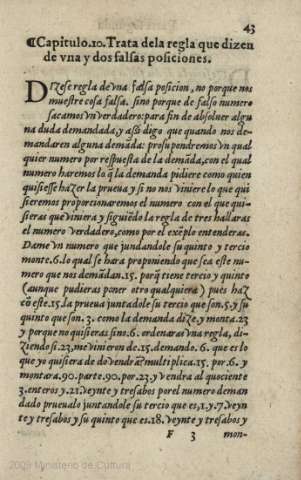 43
¶Capitulo.10. Trata dela regla que dizen
de vna y dos falsas posiciones.
Dizese regla de vna falsa posicion, no porque nos
muestre cosa falsa. sino porque de falso numero
sacamos vn verdadero: para fin de absoluer algu
na duda demandada, y assi digo que quando nos de-
mandaren alguna demãda: prosupondremos vn qual
quier numero por respuesta de la demãda, con el qual
numero haremos lo q̃ la demanda pidiere como quien
quisiesse hazer la prueua y si no nos viniere lo que qui
sieremos proporcionaremos el numero con el que qui-
sieras que viniera y siguiẽdo la regla de tres hallaras
el numero verdadero, como por el exẽplo entenderas.
Dame vn numero que juntandole su quinto y tercio
monte.6. lo qual se hara proponiendo que sea este nu-
mero que nos demãdan.15. porq̃ tiene tercio y quinto
(aunque pudieras poner otro qualquiera) pues haz
cõ este.15. la prueua juntadole su tercio que son.5. y su
quinto que son.3. como la demanda dize, y monta.23
y porque no quisieras sino.6. ordenaras vna regla, di-
ziendo si.23. me vinieron de.15. demando.6. que es lo
que yo quisiera de do vendrã? multiplica.15. por.6. y
montara.90. parte.90. por.23. y vendra al quociente
3. enteros y.21. veynte y tresabos por el numero deman
dado prueualo juntandole su tercio que es,1. y.7. veyn
te y tresabos y su quinto que es.18. veynte y tresabos y
F 3 mon-
2009 Ministerio de Cultura